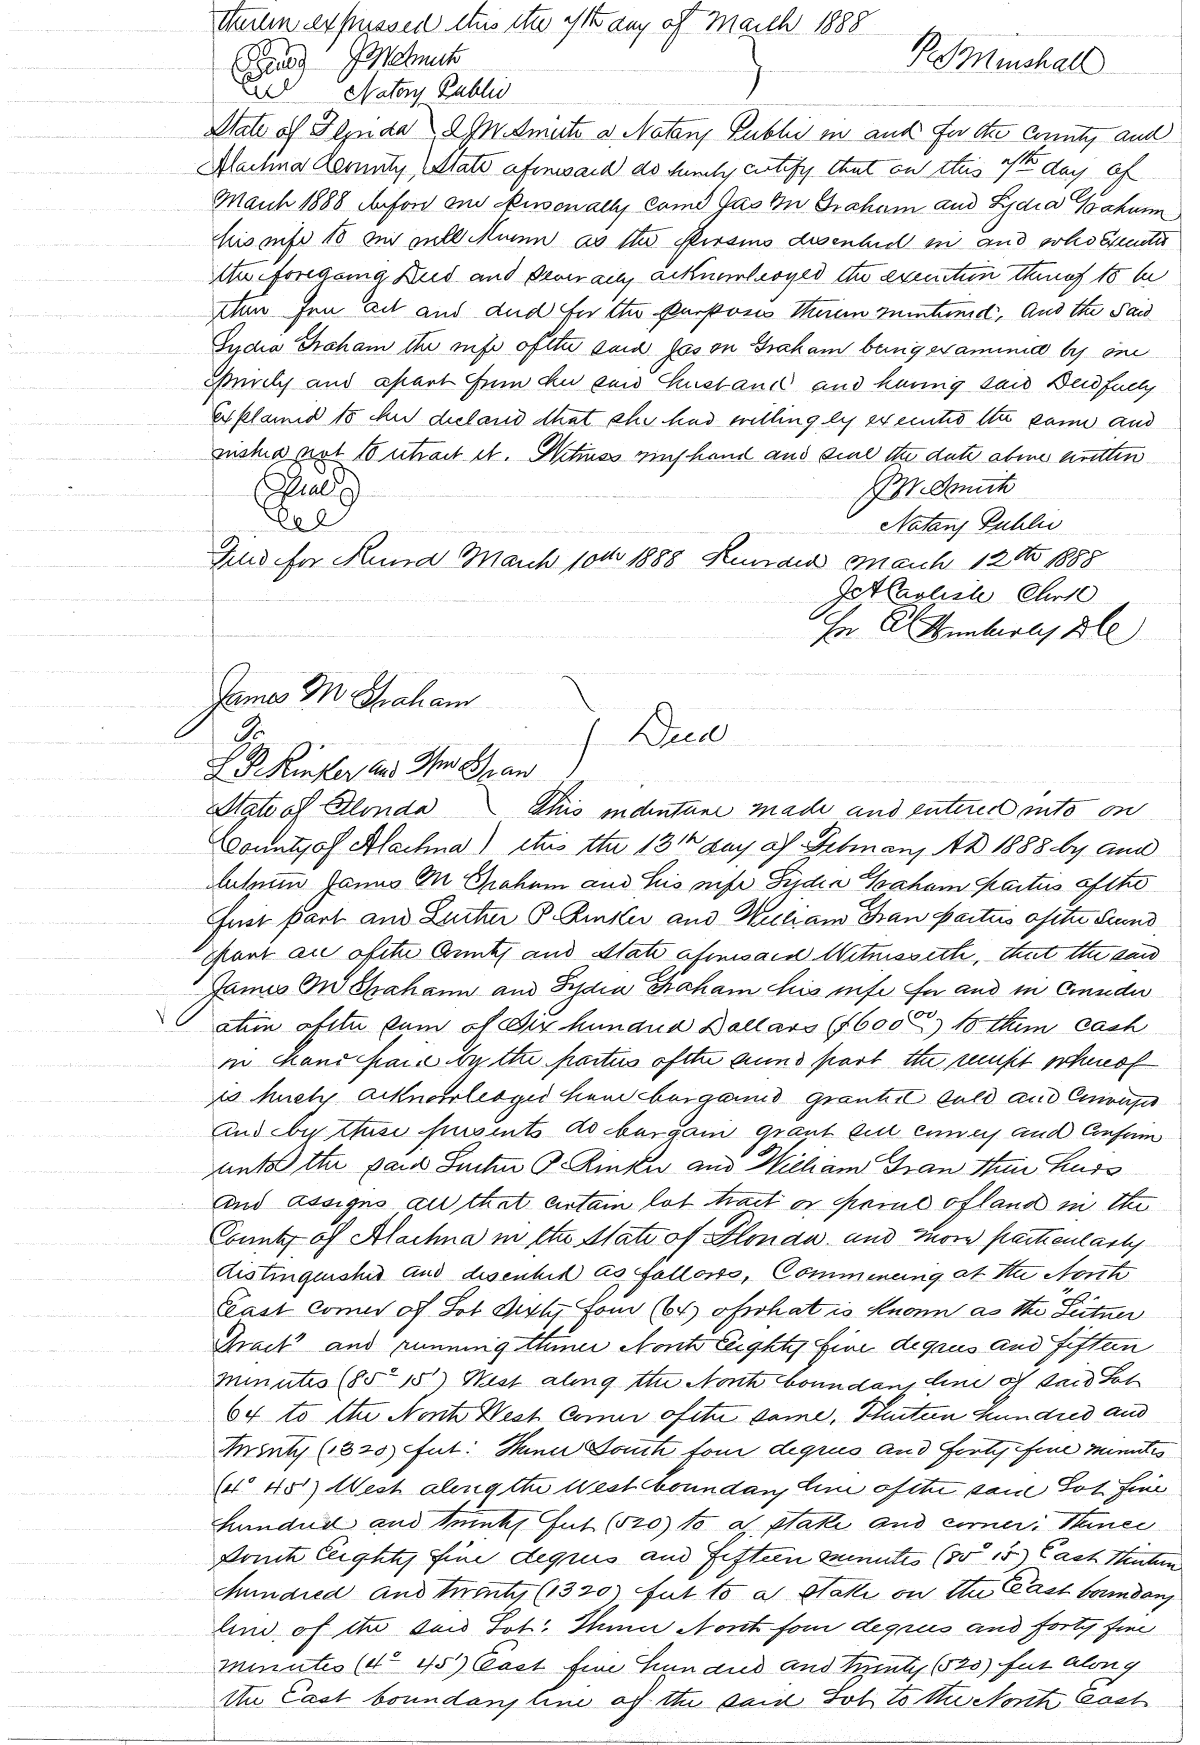 therein expressed this the 7th day of March 1888
Seal J W Smith R S Minshall
Notary Public
State of Florida I J W Smith a Notary Public in and for the County and
Alachua County State aforesaid do hereby certify that on this 7th day of
March 1888 before me personally came Jas M Graham and Lydia Graham
his wife to me well known as the persons described in and who executed
the foregoing Deed and severally acknowledged the execution thereof to be
their free act and deed for the purposes therein mentioned, and the said
Lydia Graham the wife of the said Jas M Graham being examined by me
privily and apart from her said husband and having said Deed fully
explained to her declared that she had willingly executed the same and
wished not to retract it. Witness my hand and seal the date above written
Seal J W Smith
Notary Public
Filed for Record March 10th 1888 Recorded March 12th 1888
J A Carlisle Clerk
Per Wimberly D C
James M Graham
To Deed
L P Rinker and Wm Gran
State of Florida This indenture made and entered into on
County of Alachua this the 13th day of February AD 1888 by and
between James M Graham and his wife Lydia Graham parties of the
first part and Luther P. Rinker and William Gran parties of the second
part all of the County and State aforesaid Witnesseth, that the said
James M Graham and Lydia Graham his wife for and in Consider
ation of the sum of Six hundred Dollars ($600 00) to them cash
in hand paid by the parties of the second part the receipt whereof
is hereby acknowledged have bargained granted sold and Conveyed
and by these presents do bargain grant sell convey and Confirm
unto the said Luther P. Rinker and William Gran their heirs
and assigns all that certain lot tract or parcel of land in the
County of Alachua in the State of Florida and more particularly
distinguished and described as follows, Commencing at the North
East corner of Lot Sixty four (64) of what is known as the "Leitner
Tract" and running thence North Eighty five degrees and fifteen
minutes (85° 15') West along the North boundary line of said Lot
64 to the North West Corner of the same, Thirteen hundred and
twenty (1320) feet: Thence South four degrees and forty five minutes
(4° 45') West along the West boundary line of the said Lot five
hundred and twenty feet (520) to a stake and corner: Thence
South Eighty five degrees and fifteen minutes (85° 15') East Thirteen
hundred and twenty (1320) feet to a stake on the East boundary
line of the said Lot: Thence North four degrees and forty five
minutes (4° 45') East five hundred and twenty (520) feet along
the East boundary line of the said Lot to the North East